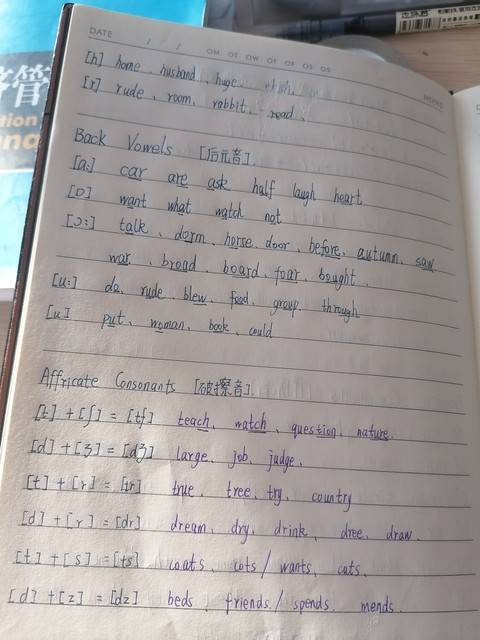 DATE / /
MO TU WE TH FR SA SU
[h] home、husband、huge、
[r] rude、room、rabbit、road.
Back Vowels [后元音]
[a:] car are ask half laugh heart
[ɒ] want what watch not
[ɔ:] talk、dorm、horse、door、before、autumn、saw
war、broad、board、four、bought.
[u:] do、rude、blew、food、group、through
[u] put、woman、book、could
Affricate Consonants [破擦音]
[t]+[ʃ]=[tʃ] teach、watch、question、nature.
[d]+[ʒ]=[dʒ] large、job、judge.
[t]+[r]=[tr] true、tree、try、country
[d]+[r]=[dr] dream、dry、drink、dree、draw.
[t]+[s]=[ts] coats、cots/wants、cats.
[d]+[z]=[dz] beds、friends/spends、mends.